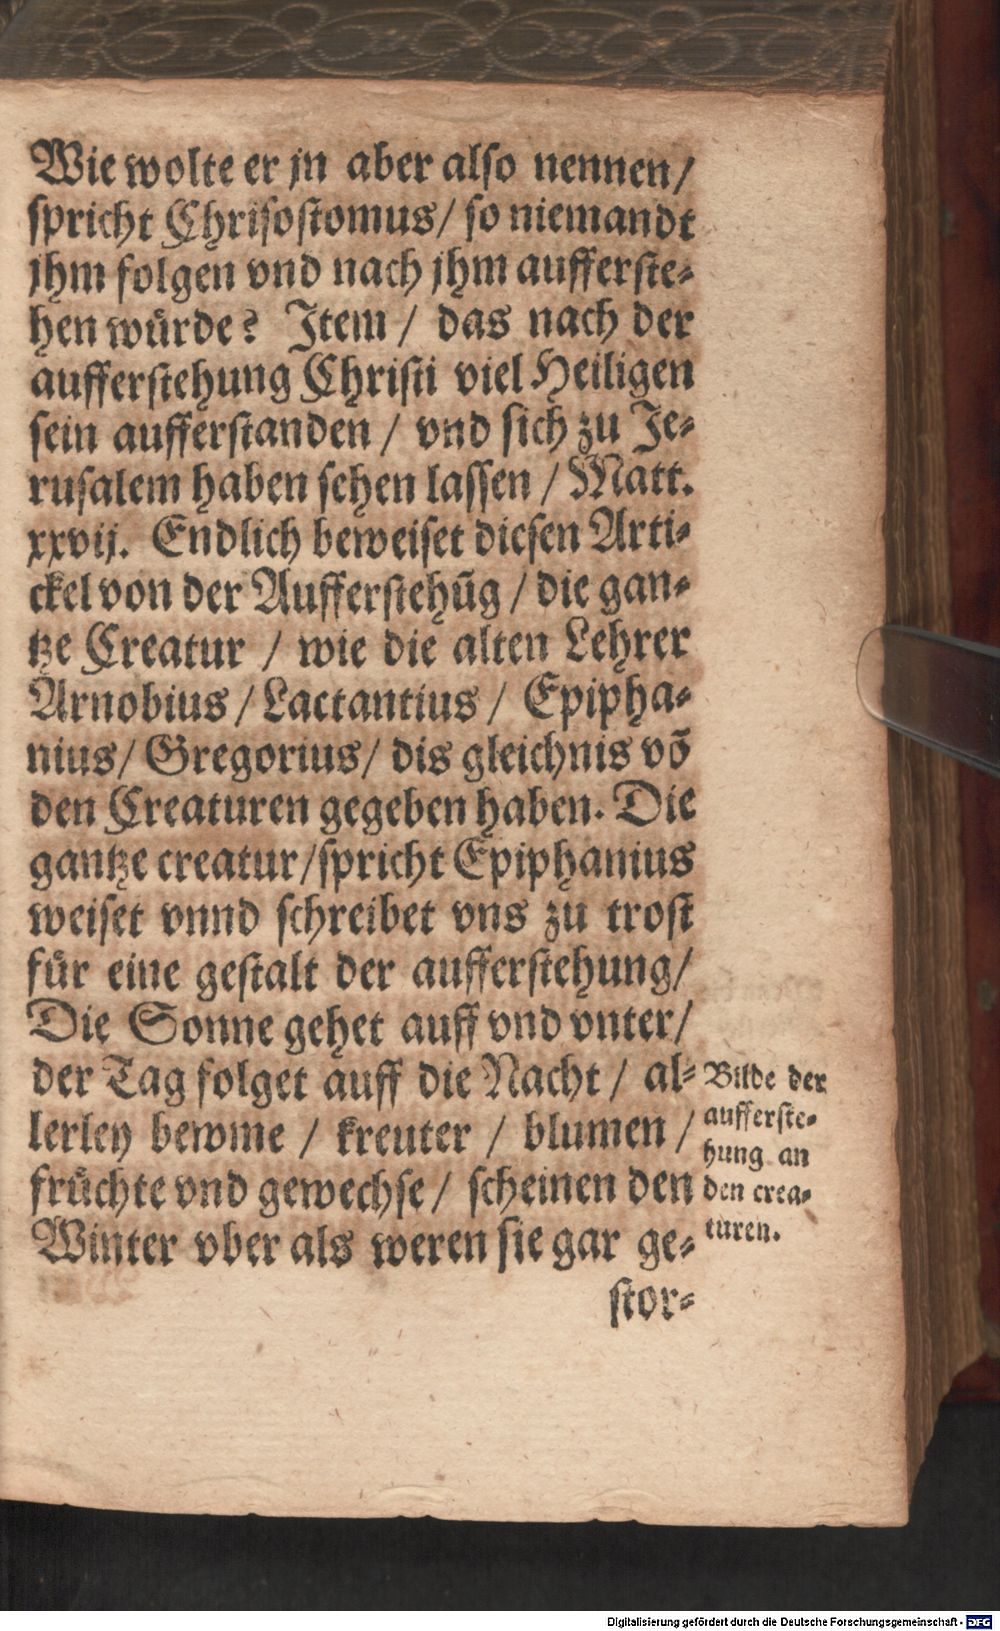 Wie wolte er jn aber also nennen/
spricht Chrisostomus/ so niemandt
jhm folgen vnd nach jhm aufferste-
hen würde? Item / das nach der
aufferstehung Christi viel Heiligen
sein aufferstanden / vnd sich zu Je-
rusalem haben sehen lassen / Matt.
xxvij. Endlich beweiset diesen Arti-
ckel von der Aufferstehūg / die gan-
tze Creatur / wie die alten Lehrer
Arnobius / Lactantius / Epipha-
nius/ Gregorius/ dis gleichnis vō
den Creaturen gegeben haben. Die
gantze creatur/spricht Epiphanius
weiset vnnd schreibet vns zu trost
für eine gestalt der aufferstehung/
Die Sonne gehet auff vnd vnter/
der Tag folget auff die Nacht / al-
lerley bewme / kreuter / blumen /
früchte vnd gewechse/ scheinen den
Winter vber als weren sie gar ge-
stor-
Bilde der
aufferste-
hung an
den crea-
turen.
Digitalisierung gefördert durch die Deutsche Forschungsgemeinschaft - DFG